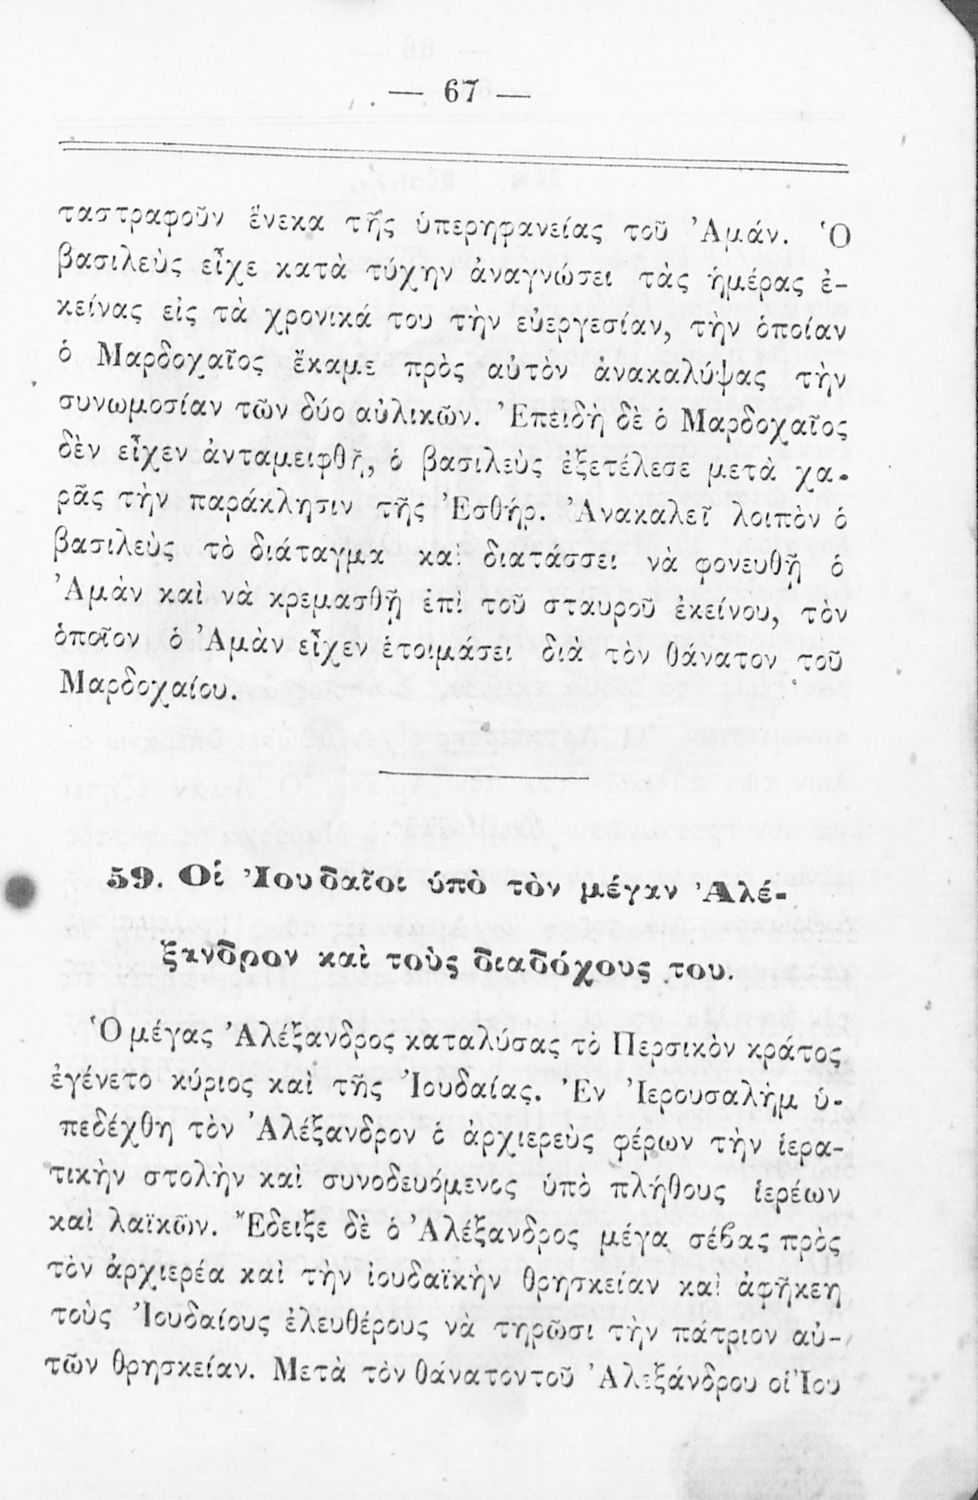 — 67 —
ταστραφοῦν ἕνεκα τῆς ὑπερηφανείας τοῦ Ἀμάν. Ὁ
βασιλεὺς εἶχε κατὰ τύχην ἀναγνώσει τὰς ἡμέρας ἐ-
κείνας εἰς τὰ χρονικά του τὴν εὐεργεσίαν, τὴν ὁποίαν
ὁ Μαρδοχαῖος ἔκαμε πρὸς αὐτὸν ἀνακαλύψας τὴν
συνωμοσίαν τῶν δύο αὐλικῶν. Ἐπειδὴ δὲ ὁ Μαρδοχαῖος
δὲν εἶχεν ἀνταμειφθῆ, ὁ βασιλεὺς ἐξετέλεσε μετὰ χα-
ρᾶς τὴν παράκλησιν τῆς Ἐσθήρ. Ἀνακαλεῖ λοιπὸν ὁ
βασιλεὺς τὸ διάταγμα καὶ διατάσσει νὰ φονευθῇ ὁ
Ἀμὰν καὶ νὰ κρεμασθῇ ἐπὶ τοῦ σταυροῦ ἐκείνου, τὸν
ὁποῖον ὁ Ἀμὰν εἶχεν ἑτοιμάσει διὰ τὸν θάνατον τοῦ
Μαρδοχαίου.
59. Οἱ Ἰουδαῖοι ὑπὸ τὸν μέγαν Ἀλέ-
ξανδρον καὶ τοὺς διαδόχους του.
Ὁ μέγας Ἀλέξανδρος καταλύσας τὸ Περσικὸν κράτος
ἐγένετο κύριος καὶ τῆς Ἰουδαίας. Ἐν Ἰερουσαλὴμ ὑ-
πεδέχθη τὸν Ἀλέξανδρον ὁ ἀρχιερεὺς φέρων τὴν ἱερα-
τικὴν στολὴν καὶ συνοδευόμενος ὑπὸ πλήθους ἱερέων
καὶ λαϊκῶν. Ἔδειξε δὲ ὁ Ἀλέξανδρος μέγα σέβας πρὸς
τὸν ἀρχιερέα καὶ τὴν ἰουδαϊκὴν θρησκείαν καὶ ἀφῆκεη
τοὺς Ἰουδαίους ἐλευθέρους νὰ τηρῶσι τὴν πάτριον αὐ-
τῶν θρησκείαν. Μετὰ τὸν θάνατον τοῦ Ἀλεξάνδρου οἱ Ἰου